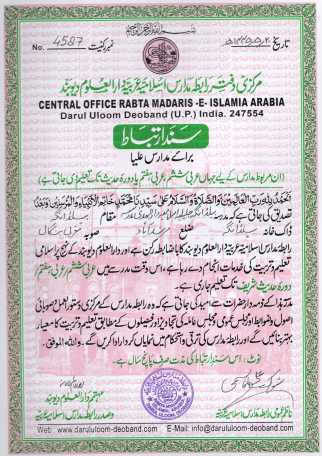 No. 4587 نمبر رکنیت
تاریخ
مرکزی دفتر رابطہ مدارس اسلامیہ عربیہ دارالعلوم دیوبند
CENTRAL OFFICE RABTA MADARIS -E- ISLAMIA ARABIA
Darul Uloom Deoband (U.P.) India. 247554
سند ارتباط
برائے مدارس علیا
(ان مربوط مدارس کے لیے جہاں عربی ششم، عربی ہفتم یا دورۂ حدیث تک تعلیم ہوتی ہے)
نحمد للہ رب العالمین والصلاۃ والسلام علی سیدنا محمد خاتم الأنبیاء والمرسلین وبعد
تصدیق کی جاتی ہے کہ مدرسہ مقام
ڈاک خانہ ضلع صوبہ
رابطہ مدارس اسلامیہ عربیہ دارالعلوم دیوبند کا باضابطہ رکن ہے اور دارالعلوم دیوبند کے نہج پر اسلامی
تعلیم و تربیت کی خدمات انجام دے رہا ہے، اس وقت مدرسہ میں عربی ششم، عربی ہفتم
دورۂ حدیث شریف تک تعلیم ہوتی ہے۔
مدرسہ ہذا کے ذمہ دار حضرات سے امید کی جاتی ہے کہ وہ رابطہ مدارس کے مرکزی دستور العمل، اصولی
اصول وضوابط اور مجلس عمومی و مجلس عاملہ کی تجاویز اور فیصلوں کے مطابق تعلیم و تربیت کا معیار
بہتر بنائیں گے اور رابطہ مدارس کی ترقی و استحکام میں نمایاں کردار ادا کریں گے۔ واللہ الموفق
نوٹ: اس سند ارتباط کی مدت صرف پانچ سال ہے۔
مہتمم دارالعلوم دیوبند
وصدر رابطہ مدارس اسلامیہ عربیہ
ناظم عمومی رابطہ مدارس اسلامیہ عربیہ
Web: www.darululoom-deoband.com E-Mail: info@darululoom-deoband.com